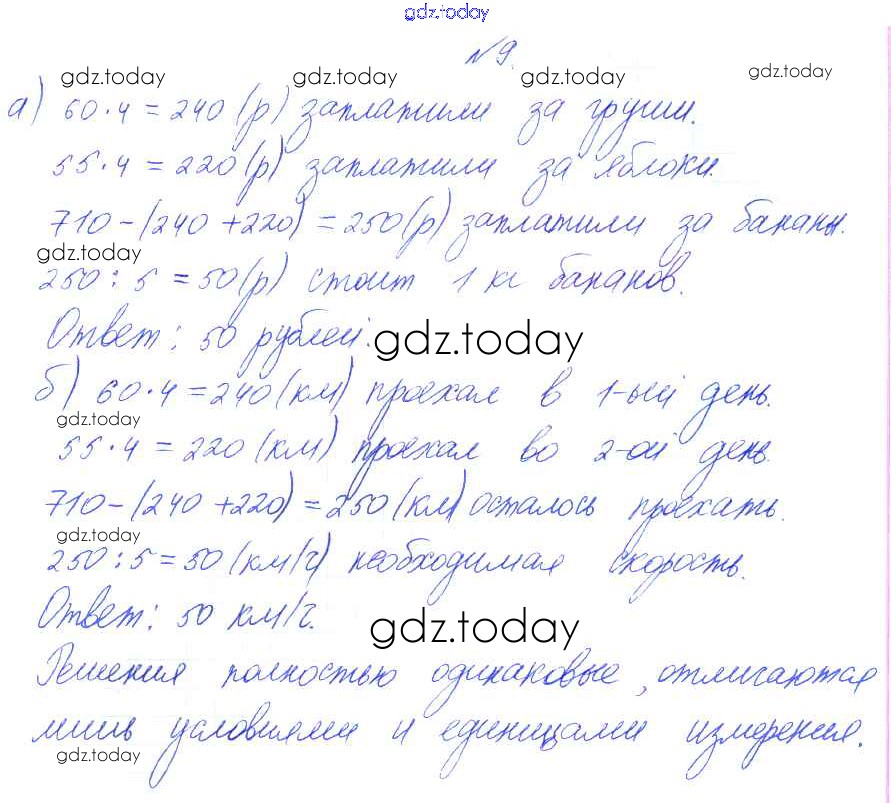 gdz.today
№9.
gdz.today gdz.today gdz.today gdz.today
а) 60·4 = 240 (р) заплатили за груши.
55·4 = 220 (р) заплатили за яблоки.
710-(240+220) = 250 (р) заплатили за бананы.
gdz.today
250:5 = 50 (р) стоит 1 кг бананов.
Ответ: 50 рублей.
gdz.today
б) 60·4 = 240 (км) проехал в 1-ый день.
gdz.today
55·4 = 220 (км) проехал во 2-ой день.
710-(240+220) = 250 (км) осталось проехать.
gdz.today
250:5 = 50 (км/ч) необходимая скорость.
Ответ: 50 км/ч.
gdz.today
Решения полностью одинаковые, отличаются
лишь условиями и единицами измерения.
gdz.today